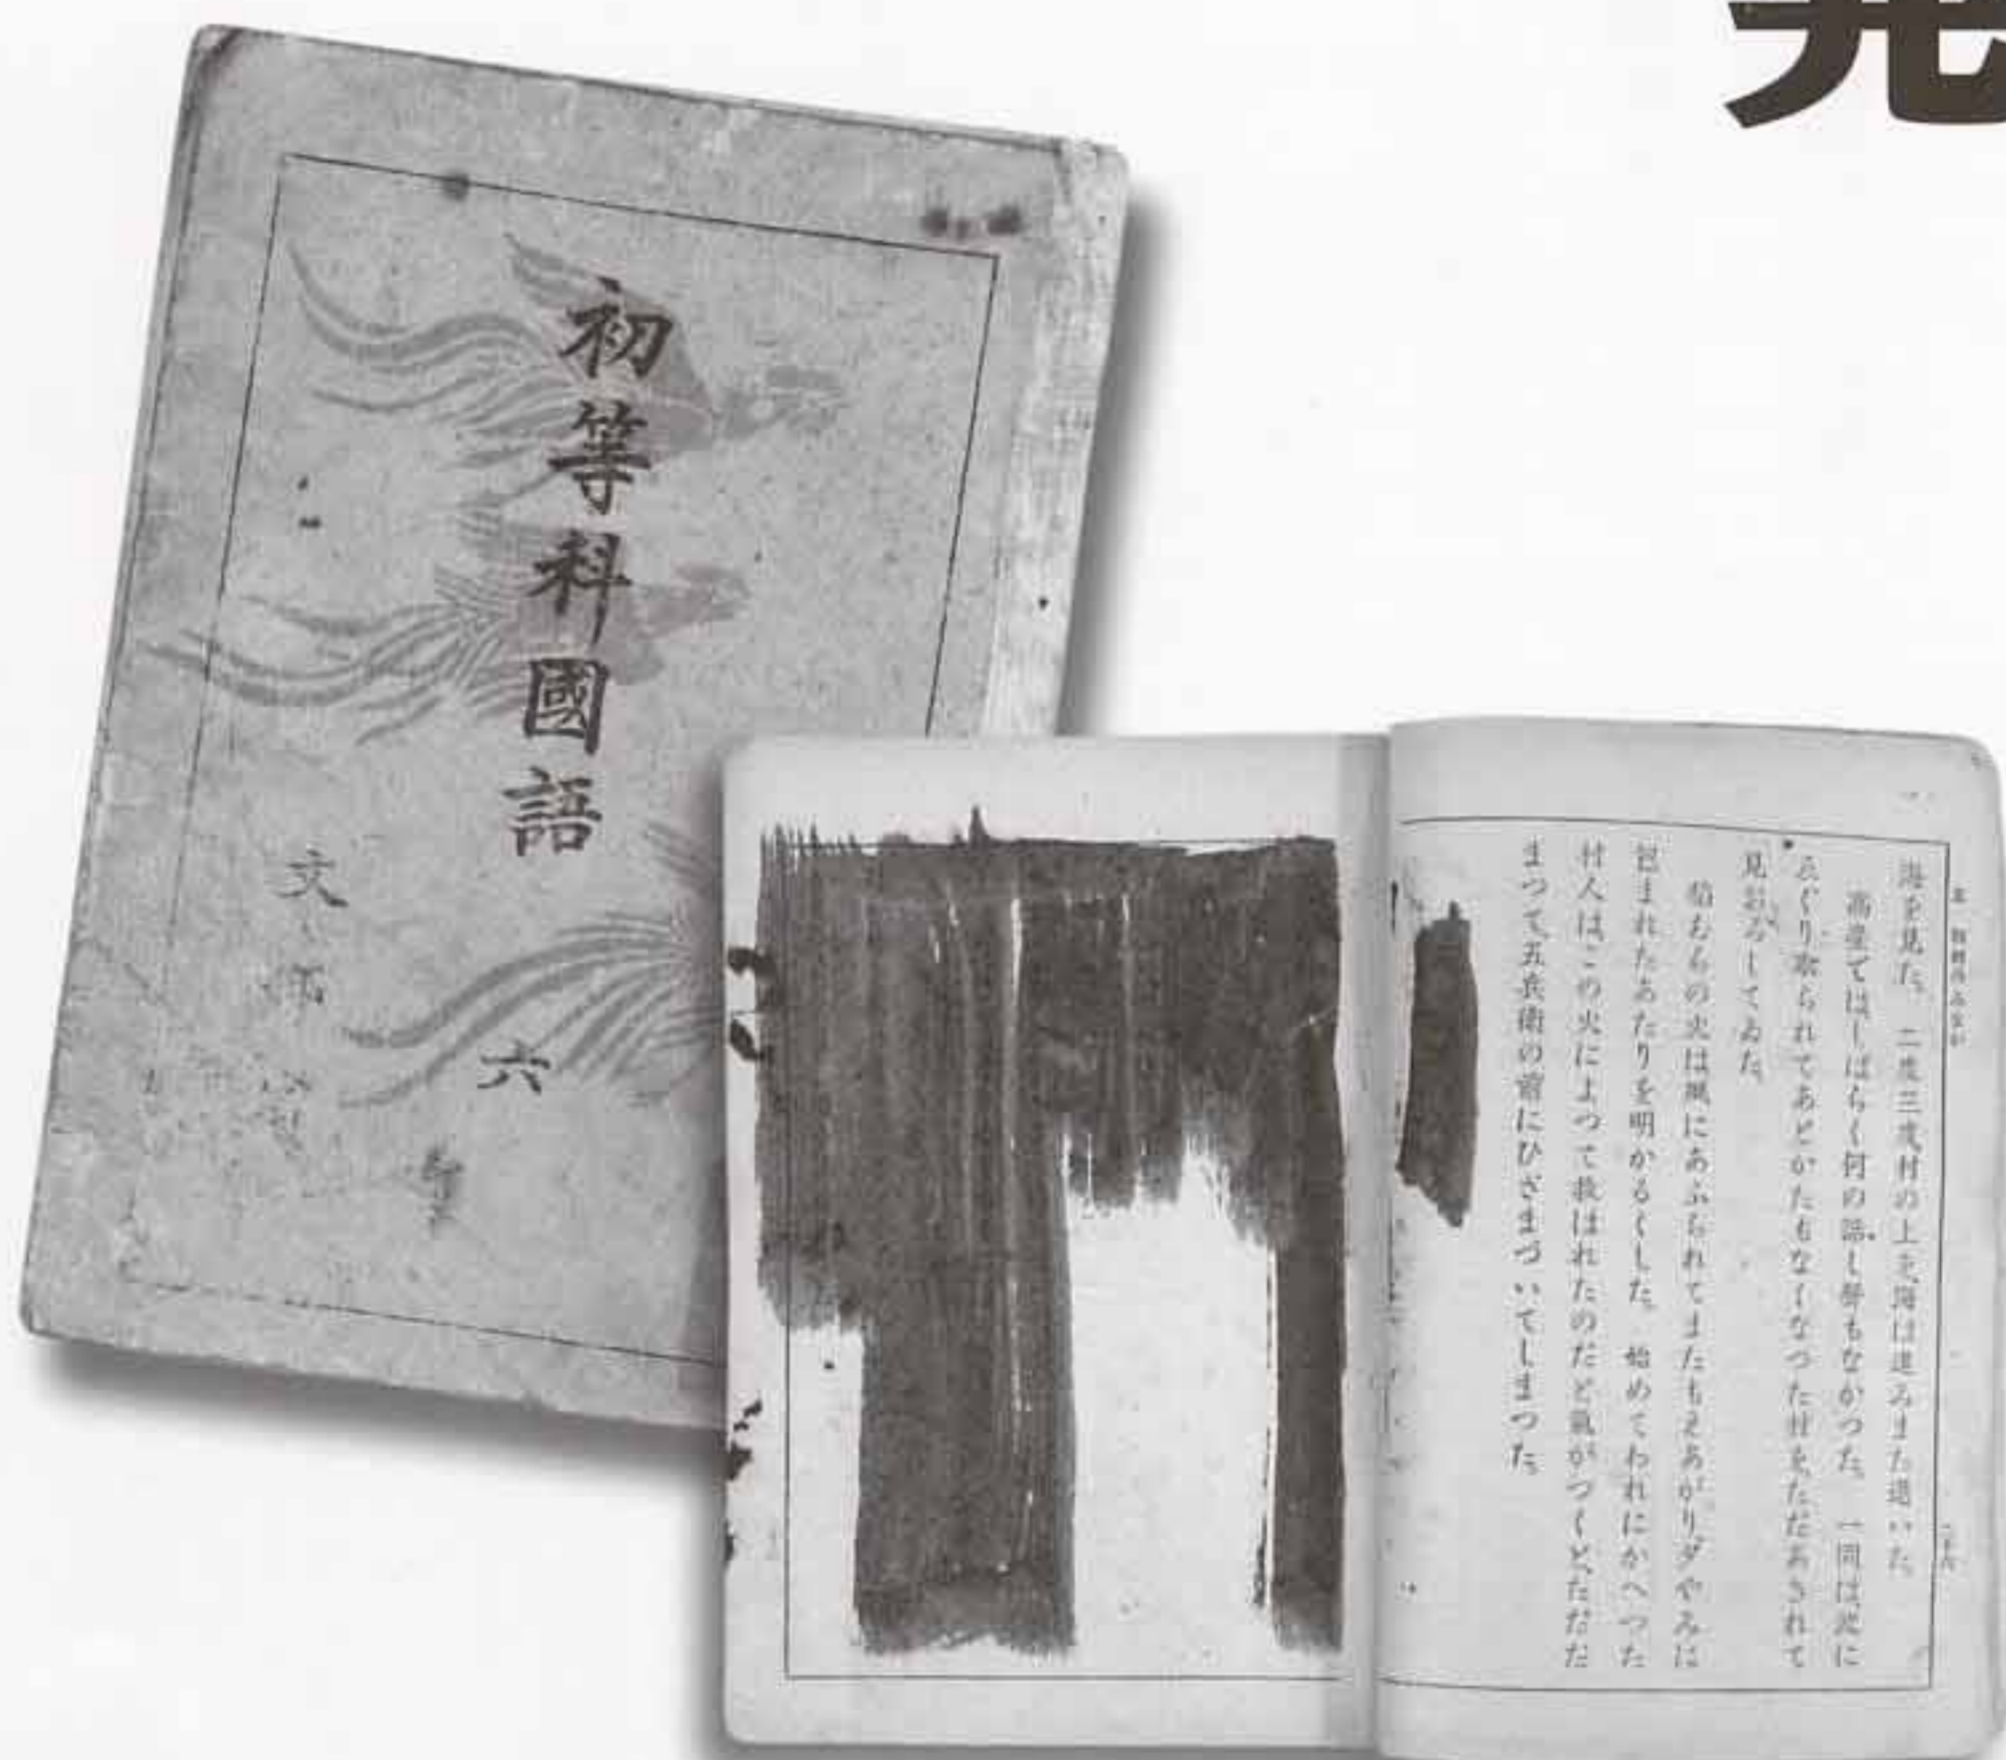 初等科國語
六
文部省
海を見た。二度三度村の上を海は進みまた退いた。
高臺ではしばらく何の話し聲もなかつた。一同は波に
ゑぐり取られてあとかたもなくなつた村をただあきれて
見おろしてゐた。
稻むらの火は風にあふられてまたもえあがり夕やみに
包まれたあたりを明かるくした。始めてわれにかへつた
村人はこの火によつて救はれたのだと氣がつくとただだ
まつて五兵衛の前にひざまづいてしまつた。